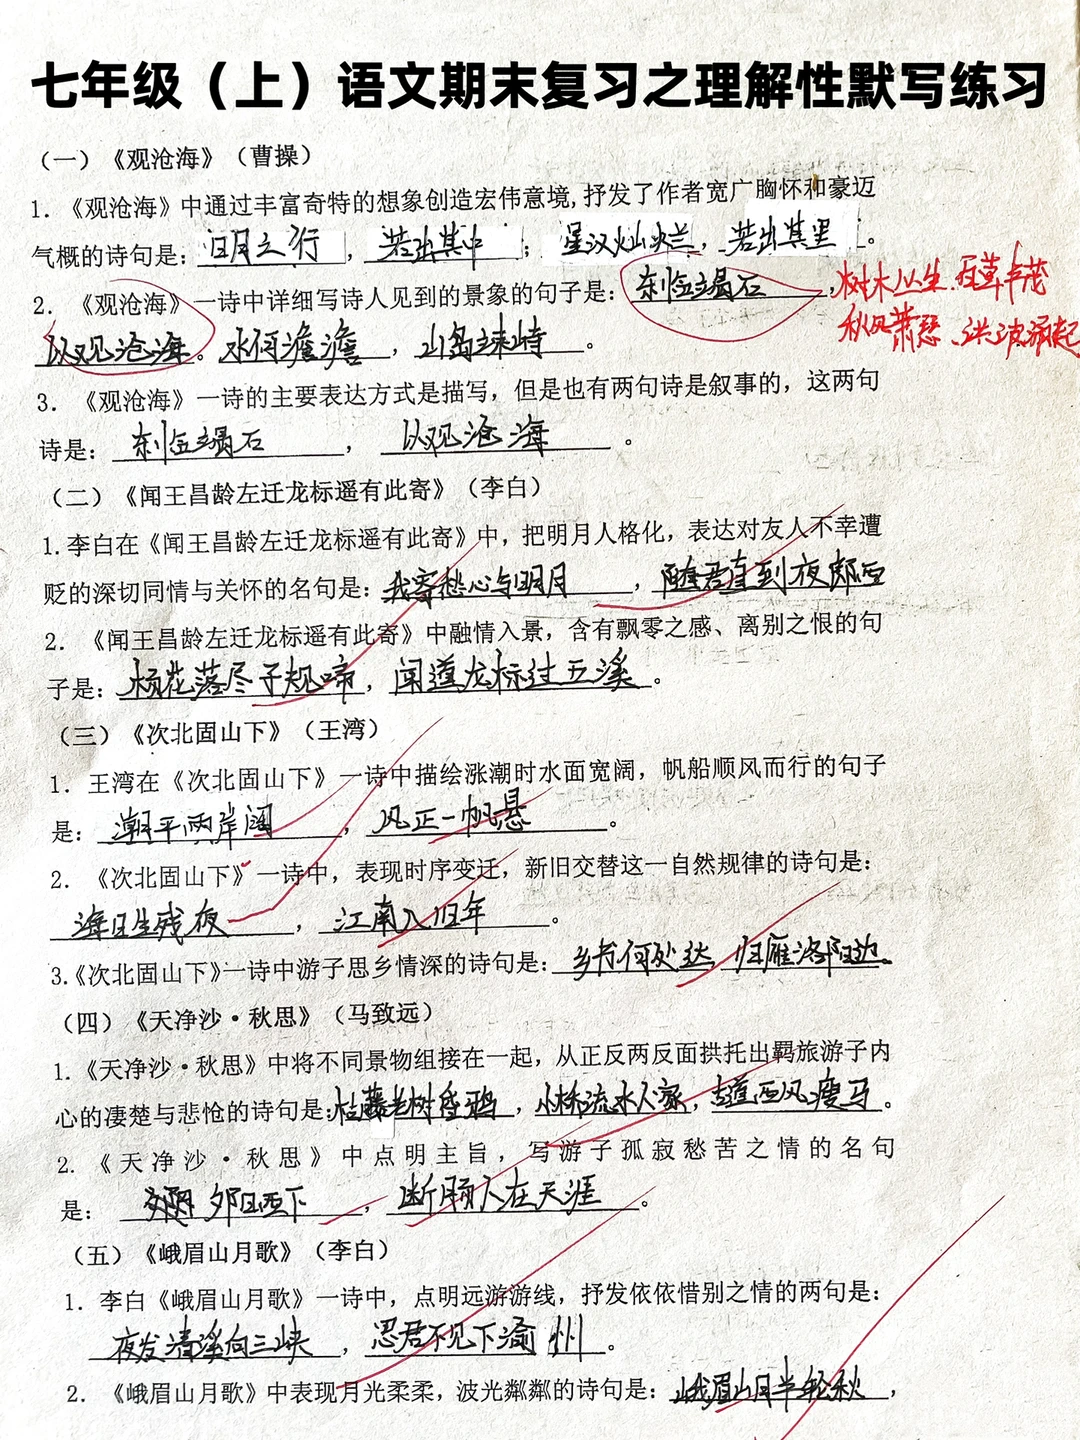 七年级（上）语文期末复习之理解性默写练习
（一）《观沧海》（曹操）
1.《观沧海》中通过丰富奇特的想象创造宏伟意境,抒发了作者宽广胸怀和豪迈
气概的诗句是: 日月之行 , 若出其中 ; 星汉灿烂 , 若出其里 。
2. 《观沧海》一诗中详细写诗人见到的景象的句子是: 东临碣石 , 树木丛生.百草丰茂
秋风萧瑟、洪波涌起
以观沧海 。水何澹澹 , 山岛竦峙 。
3. 《观沧海》一诗的主要表达方式是描写，但是也有两句诗是叙事的，这两句
诗是: 东临碣石 , 以观沧海 。
（二）《闻王昌龄左迁龙标遥有此寄》（李白）
1.李白在《闻王昌龄左迁龙标遥有此寄》中，把明月人格化，表达对友人不幸遭
贬的深切同情与关怀的名句是: 我寄愁心与明月 , 随君直到夜郎西
2. 《闻王昌龄左迁龙标遥有此寄》中融情入景，含有飘零之感、离别之恨的句
子是: 杨花落尽子规啼 , 闻道龙标过五溪 。
（三）《次北固山下》（王湾）
1. 王湾在《次北固山下》一诗中描绘涨潮时水面宽阔，帆船顺风而行的句子
是: 潮平两岸阔 , 风正一帆悬 。
2. 《次北固山下》一诗中，表现时序变迁，新旧交替这一自然规律的诗句是:
海日生残夜 , 江南入旧年 。
3.《次北固山下》一诗中游子思乡情深的诗句是: 乡书何处达 归雁洛阳边。
（四）《天净沙·秋思》（马致远）
1.《天净沙·秋思》中将不同景物组接在一起，从正反两反面拱托出羁旅游子内
心的凄楚与悲怆的诗句是: 枯藤老树昏鸦 , 小桥流水人家 , 古道西风瘦马 。
2. 《天净沙·秋思》中点明主旨，写游子孤寂愁苦之情的名句
是: 夕阳西下 , 断肠人在天涯 。
（五）《峨眉山月歌》（李白）
1. 李白《峨眉山月歌》一诗中，点明远游游线，抒发依依惜别之情的两句是:
夜发清溪向三峡 , 思君不见下渝州 。
2. 《峨眉山月歌》中表现月光柔柔，波光粼粼的诗句是: 峨眉山月半轮秋 ,